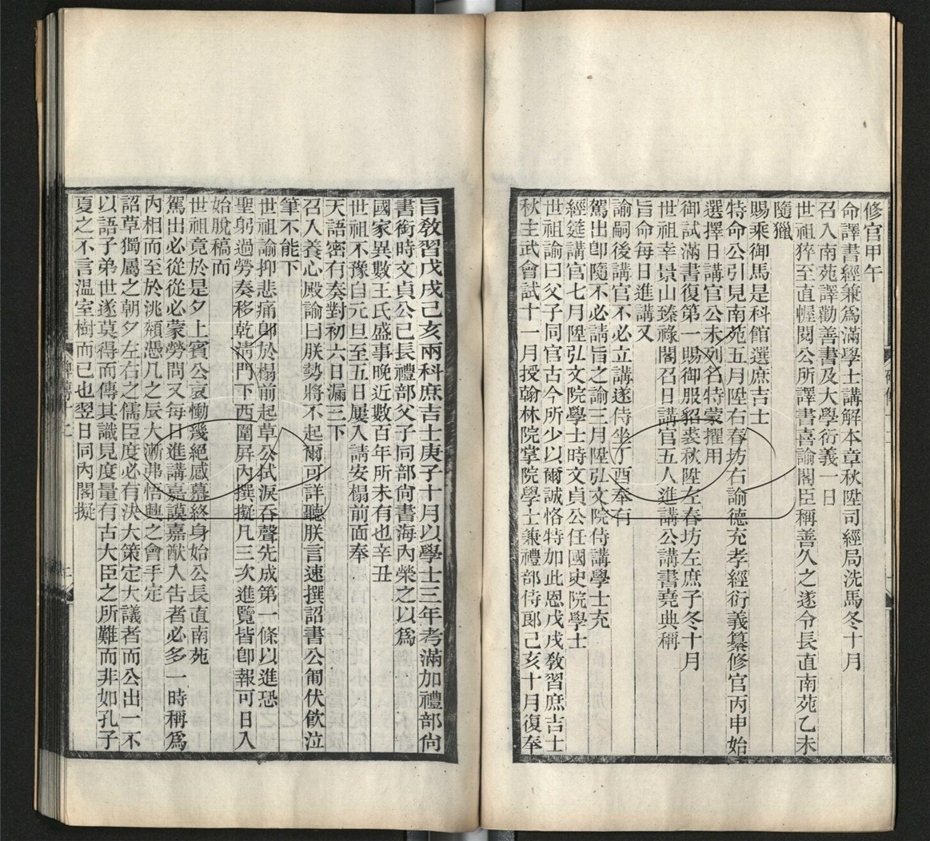 修官甲午
命譯書經兼爲滿學士講解本章秋陞司經局洗馬冬十月
召入南苑譯勸善書及大學衍義一日
世祖猝至直幄閱公所譯書喜諭閣臣稱善久之遂令長直南苑乙未
隨獵
賜乘御馬是科館選庶吉士
特命公引見南苑五月陞右春坊右諭德充孝經衍義纂修官丙申始
選擇日講官公未列名特蒙擢用
御試滿書復第一賜御服貂裘秋陞左春坊左庶子冬十月
世祖幸景山瑧祿閣召日講官五人進講公講書堯典稱
旨命每日進講又
諭嗣後講官不必立講遂侍坐丁酉奉有
駕出卽隨不必請旨之諭三月陞弘文院侍講學士充
經筵講官七月陞弘文院學士時文貞公任國史院學士
世祖諭曰父子同官古今所少以爾誠恪特加此恩戊戌敎習庶吉士
秋主武會試十一月授翰林院掌院學士兼禮部侍郞己亥十月復奉
旨敎習戊戌己亥兩科庶吉士庚子十月以學士三年考滿加禮部尙
書銜時文貞公已長禮部父子同部尙書海內榮之以爲
國家異數王氏盛事晚近數百年所未有也辛丑
世祖不豫自元旦至五日屢入請安榻前面奉
天語密有奏對初六日漏三下
召入養心殿諭曰朕勢將不起爾可詳聽朕言速撰詔書公匍伏飮泣
筆不能下
世祖諭抑悲痛卽於榻前起草公拭淚呑聲先成第一條以進恐
聖躬過勞奏移乾淸門下西圍屛內撰擬凡三次進覽皆卽報可日入
始脫稿而
世祖竟於是夕上賓公哀慟幾絕感慕終身始公長直南苑
駕出必從從必蒙勞問又每日進講嘉謨嘉猷入告者必多一時稱爲
內相而至於洮頮憑几之辰大漸弗悟興之會手定
詔草獨屬之朝夕左右之儒臣度必有決大策定大議者而公出一不
以語子弟世遂莫得而傳其識見度量有古大臣之所難而非如孔子
夏之不言溫室樹而已也翌日同內閣擬